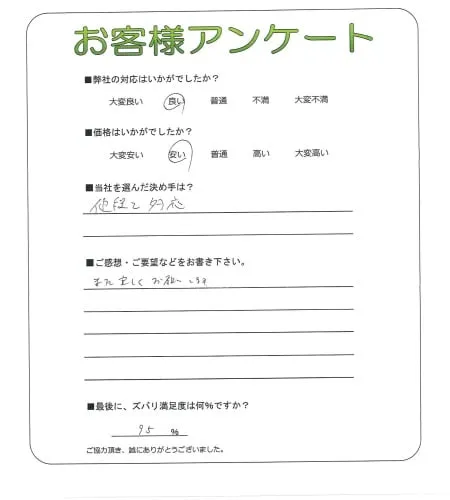 お客様アンケート
■弊社の対応はいかがでしたか？
大変良い 良い 普通 不満 大変不満
■価格はいかがでしたか？
大変安い 安い 普通 高い 大変高い
■当社を選んだ決め手は？
対応
■ご感想・ご要望などをお書き下さい。
また宜しくお願いします
■最後に、ズバリ満足度は何%ですか？
95 %
ご協力頂き、誠にありがとうございました。